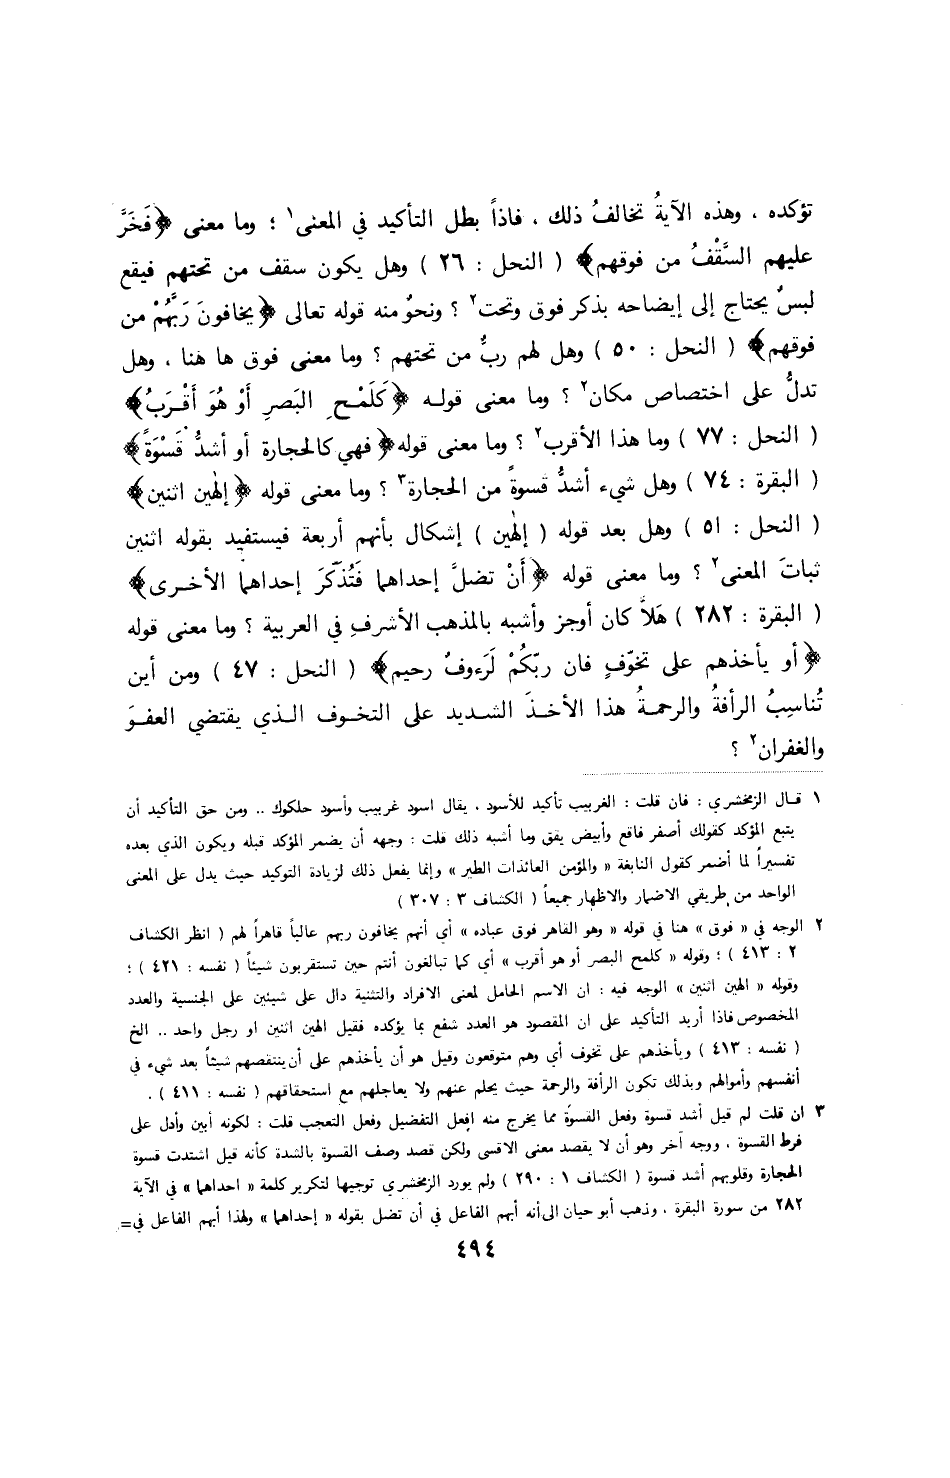 تؤكده ، وهذه الآيةُ تخالفُ ذلك ، فاذاً بطل التأكيد في المعنى١ ؛ وما معنى ﴿فَخَرَّ
عليهم السَّقْفُ من فوقهم﴾ ( النحل : ٢٦ ) وهل يكون سقف من تحتهم فيقع
لبسٌ يحتاج إلى إيضاحه بذكر فوق وتحت٢ ؟ ونحوٌ منه قوله تعالى ﴿يخافونَ رَبَّهُمْ من
فوقهم﴾ ( النحل : ٥٠ ) وهل لهم ربٌّ من تحتهم ؟ وما معنى فوق ها هنا ، وهل
تدلُّ على اختصاص مكان٢ ؟ وما معنى قوله ﴿كَلَمْحِ البَصرِ أَوْ هُوَ أَقْرَبُ﴾
( النحل : ٧٧ ) وما هذا الأقرب٢ ؟ وما معنى قوله﴿فهي كالحجارة أو أشدُّ قَسْوَةً﴾
( البقرة : ٧٤ ) وهل شيء أشدُّ قسوةً من الحجارة٣ ؟ وما معنى قوله ﴿إلٰهين اثنين﴾
( النحل : ٥١ ) وهل بعد قوله ( إلٰهين ) إشكال بأنهم أربعة فيستفيد بقوله اثنين
ثباتَ المعنى٢ ؟ وما معنى قوله ﴿أَنْ تضلَّ إحداهما فَتُذَكّرَ إحداهما الأخرى﴾
( البقرة : ٢٨٢ ) هَلاَّ كان أوجز وأشبه بالمذهب الأشرفِ في العربية ؟ وما معنى قوله
﴿أو يأخذهم على تخوّفٍ فان ربّكُمْ لَرَءوفٌ رحيم﴾ ( النحل : ٤٧ ) ومن أين
تُناسِبُ الرأفةُ والرحمةُ هذا الأخذَ الشديد على التخوف الذي يقتضي العفوَ
والغفران٢ ؟
١ قال الزمخشري : فان قلت : الغربيب تأكيد للأسود ، يقال اسود غربيب وأسود حلكوك .. ومن حق التأكيد أن
يتبع المؤكد كقولك أصفر فاقع وأبيض يقق وما أشبه ذلك قلت : وجهه أن يضمر المؤكد قبله ويكون الذي بعده
تفسيراً لما أضمر كقول النابغة « والمؤمن العائذات الطير » وإنما يفعل ذلك لزيادة التوكيد حيث يدل على المعنى
الواحد من طريقي الاضمار والاظهار جميعاً ( الكشاف ٣ : ٣٠٧ )
٢ الوجه في « فوق » هنا في قوله « وهو القاهر فوق عباده » أي أنهم يخافون ربهم عالياً قاهراً لهم ( انظر الكشاف
٢ : ٤١٣ ) ؛ وقوله « كلمح البصر أو هو أقرب » أي كما تبالغون أنتم حين تستقربون شيئاً ( نفسه : ٤٢١ ) ؛
وقوله « الهين اثنين » الوجه فيه : ان الاسم الحامل لمعنى الافراد والتثنية دال على شيئين على الجنسية والعدد
المخصوص فاذا أريد التأكيد على ان المقصود هو العدد شفع بما يؤكده فقيل الهين اثنين او رجل واحد .. الخ
( نفسه : ٤١٣ ) ويأخذهم على تخوف أي وهم متوقعون وقيل هو أن يأخذهم على أن ينتقصهم شيئاً بعد شيء في
أنفسهم وأموالهم وبذلك تكون الرأفة والرحمة حيث يحلم عنهم ولا يعاجلهم مع استحقاقهم ( نفسه : ٤١١ ) .
٣ ان قلت لم قيل أشد قسوة وفعل القسوة مما يخرج منه افعل التفضيل وفعل التعجب قلت : لكونه أبين وأدل على
فرط القسوة ، ووجه آخر وهو أن لا يقصد معنى الاقسى ولكن قصد وصف القسوة بالشدة كأنه قيل اشتدت قسوة
الحجارة وقلوبهم أشد قسوة ( الكشاف ١ : ٢٩٠ ) ولم يورد الزمخشري توجيها لتكرير كلمة « احداهما » في الآية
٢٨٢ من سورة البقرة ، وذهب أبو حيان الى أنه أبهم الفاعل في أن تضل بقوله « إحداهما » ولهذا أبهم الفاعل في=
٤٩٤